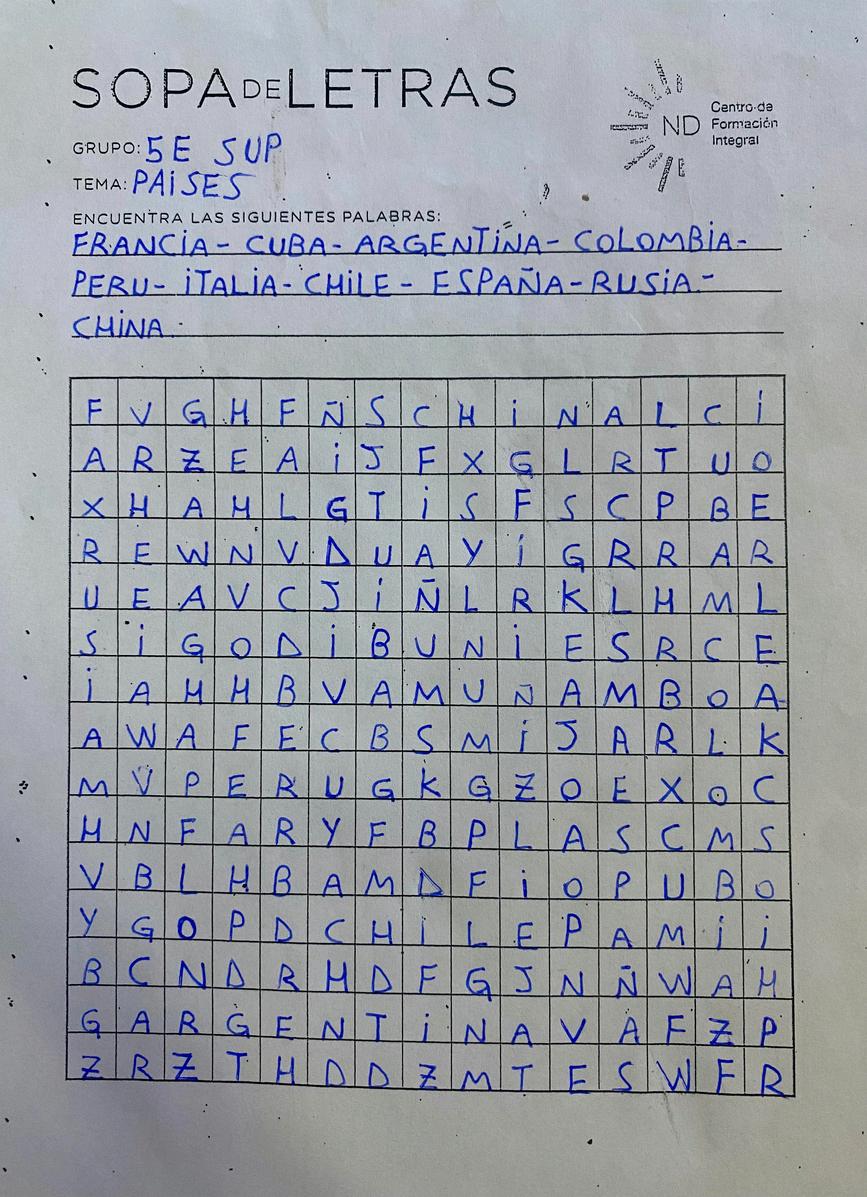 SOPA DE LETRAS
ND Centro de
Formación
Integral
GRUPO: 5E SUP
TEMA: PAiSES
ENCUENTRA LAS SIGUIENTES PALABRAS:
FRANCiA- CUBA- ARGENTiÑA- COLOMBiA-
PERU- iTALiA- CHiLE- ESPAÑA-RUSiA-
CHiNA
F V G H F Ñ S C H i N A L C i
A R Z E A i J F X G L R T U O
X H A H L G T i S F S C P B E
R E W N V D U A Y i G R R A R
U E A V C J i Ñ L R K L H M L
S i G O D i B U N i E S R C E
i A H H B V A M U Ñ A M B O A
A W A F E C B S M i J A R L K
M V P E R U G K G Z O E X O C
H N F A R Y F B P L A S C M S
V B L H B A M D F i O P U B O
Y G O P D C H i L E P A M i i
B C N D R H D F G J N Ñ W A H
G A R G E N T i N A V A F Z P
Z R Z T H D D Z M T E S W F R